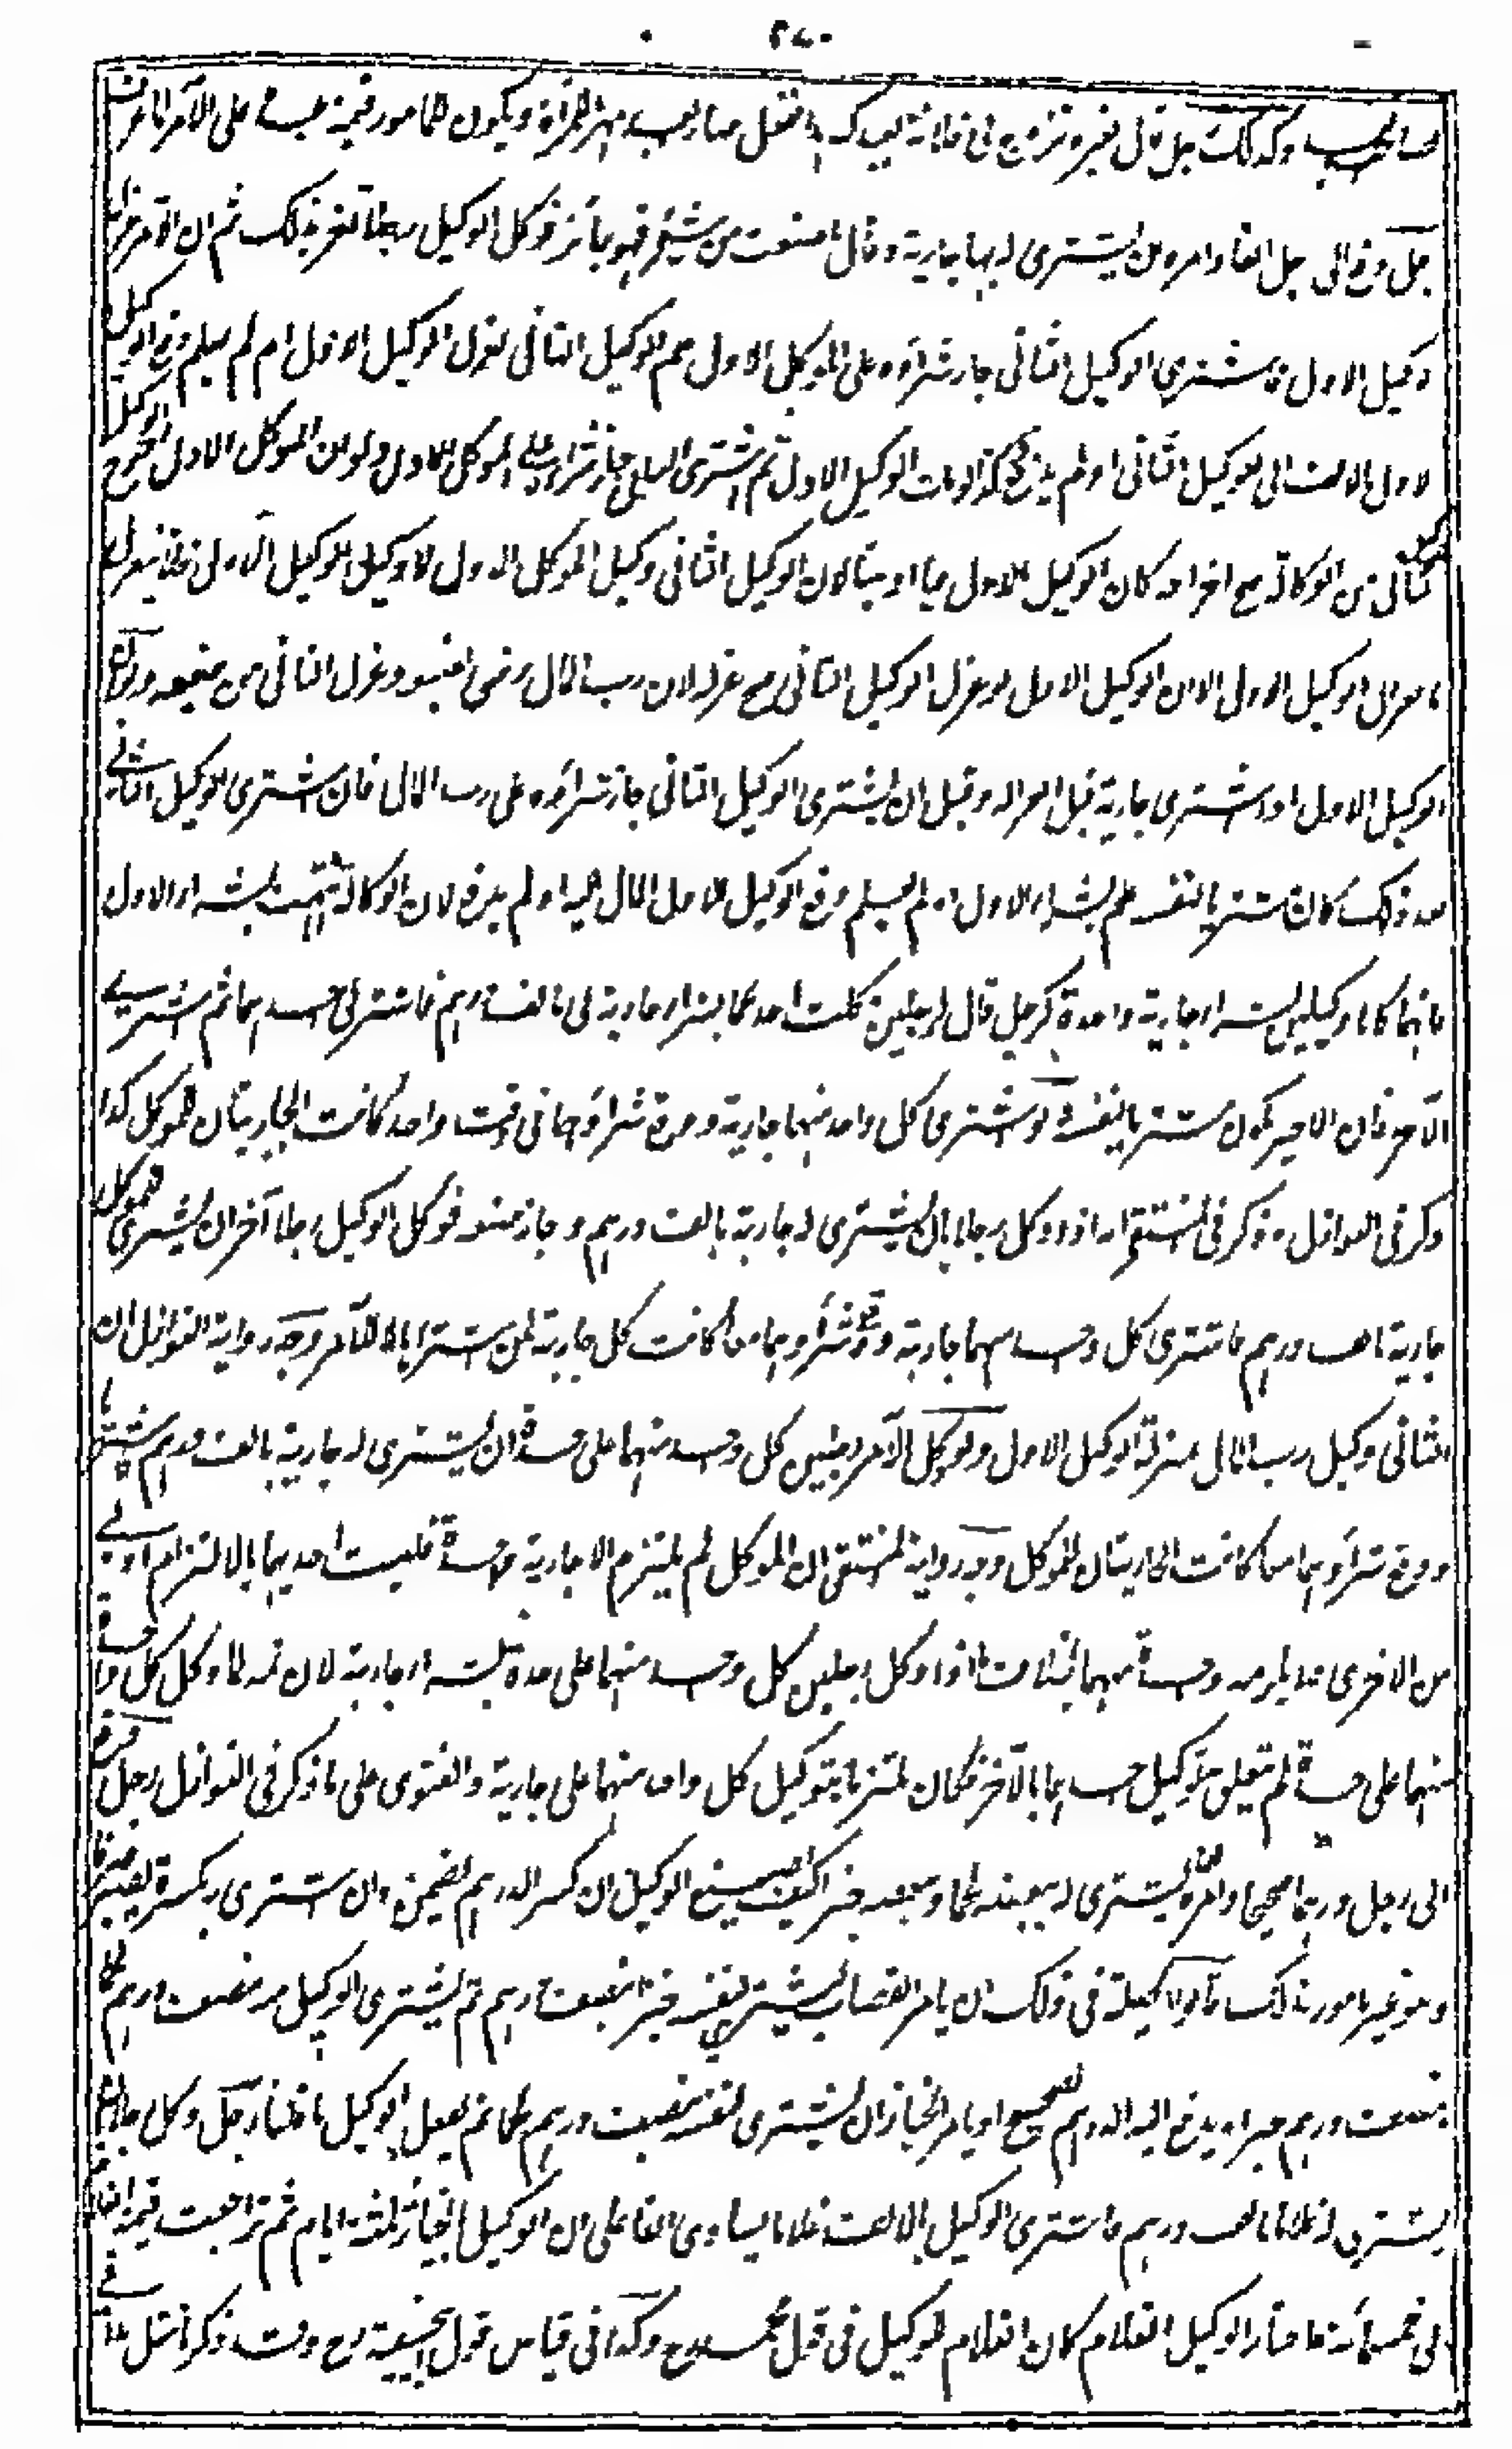 ٥٧٠
وكذلك رجل قال لغيره تزوج لي فلانة بعبدك هذا ففعل صار العبد مهرا للمرأة ويكون للمامور قيمة عبده على الآمر
رجل دفع الى رجل الفا وامره بان يشتري له بها جارية وقال ما صنعت من شيء فهو جائز فوكل الوكيل رجلا آخر بذلك ثم ان الآمر عزل
الوكيل الاول فاشترى الوكيل الثاني جاز شراؤه على الموكل الاول علم الوكيل الثاني بعزل الوكيل الاول ام لم يعلم دفع الوكيل
الاول الالف الى الوكيل الثاني او لم يدفع وكذا لو مات الوكيل الاول ثم اشترى الثاني جاز شراؤه على الموكل الاول ولو ان الموكل الاول اخرج الوكيل
الثاني من الوكالة صح اخراجه كان الوكيل الاول حيا او ميتا لان الوكيل الثاني وكيل الموكل الاول لا وكيل الوكيل الاول فلا ينعزل
بعزل الوكيل الاول الا ان الوكيل الاول لو عزل الوكيل الثاني صح عزله لان رب المال رضي بصنيعه وعزل الثاني من صنيعه ولو ان
الوكيل الاول اذا اشترى جارية قبل العزل وقبل ان يشتري الوكيل الثاني جاز شراؤه على رب المال فان اشترى الوكيل الثاني
بعد ذلك كان مشتريا لنفسه علم بشراء الاول او لم يعلم دفع الوكيل الاول المال اليه او لم يدفع لان الوكالة انتهت بشراء الاول
فانهما كانا وكيلين بشراء جارية واحدة كرجل قال لرجلين وكلت احدكما بشراء جارية لي بالف درهم فاشترى احدهما ثم اشترى
الآخر فان الاخير يكون مشتريا لنفسه ولو اشترى كل واحد منهما جارية ووقع شراؤهما في وقت واحد كانت الجاريتان للموكل كذا
ذكر في النوازل وذكر في المنتقى انه اذا وكل رجلا بان يشتري له جارية بالف درهم وجاز صنعه فوكل الوكيل رجلا آخر ان يشتري للموكل
جارية بالف درهم فاشترى كل واحد منهما جارية ووقع شراؤهما معا كانت كل جارية لمن اشتراها لا للآمر وجه رواية النوازل ان
الثاني وكيل رب المال بمنزلة الوكيل الاول ولو وكل الآمر رجلين كل واحد منهما على حدة ان يشتري له جارية بالف درهم فاشتريا
ووقع شراؤهما معا كانت الجاريتان للموكل وجه رواية المنتقى ان الموكل لم يلتزم الا جارية واحدة فليست احديهما بالالتزام اولى
من الاخرى فلا يلزمه واحدة منهما بخلاف ما اذا وكل رجلين كل واحد منهما على حدة بشراء جارية لان ثمه لما وكل كل واحد
منهما على حدة لم يتعلق توكيل احدهما بالآخر فكان ملتزما بتوكيل كل واحد منهما على جارية والفتوى على ما ذكر في النوازل رجل دفع
الى رجل درهما صحيحا وامره ان يشتري له ببعضه لحما وببعضه خبزا كيف يصنع الوكيل ان كسر الدرهم يضمن وان اشترى بكسره يصير صرفا
وهو غير مامور بذلك قالوا الحيلة في ذلك ان يامر القصاب ليشتري لنفسه خبزا بنصف درهم ثم يشتري الوكيل منه بنصف درهم لحما
وبنصف درهم خبزا ويدفع اليه الدرهم الصحيح او يامر الخباز ان يشتري لنفسه بنصف درهم لحما ثم يفعل الوكيل ما قلنا رجل وكل رجلا بان
يشتري له غلاما بالف درهم فاشترى الوكيل بالالف غلاما يساوي الفا على ان الوكيل بالخيار ثلثة ايام ثم تراجعت قيمة الغلام
الى خمسمائة فاختار الوكيل الغلام كان الغلام للوكيل في قول محمد رح وكذا في قياس قول ابي حنيفة رح